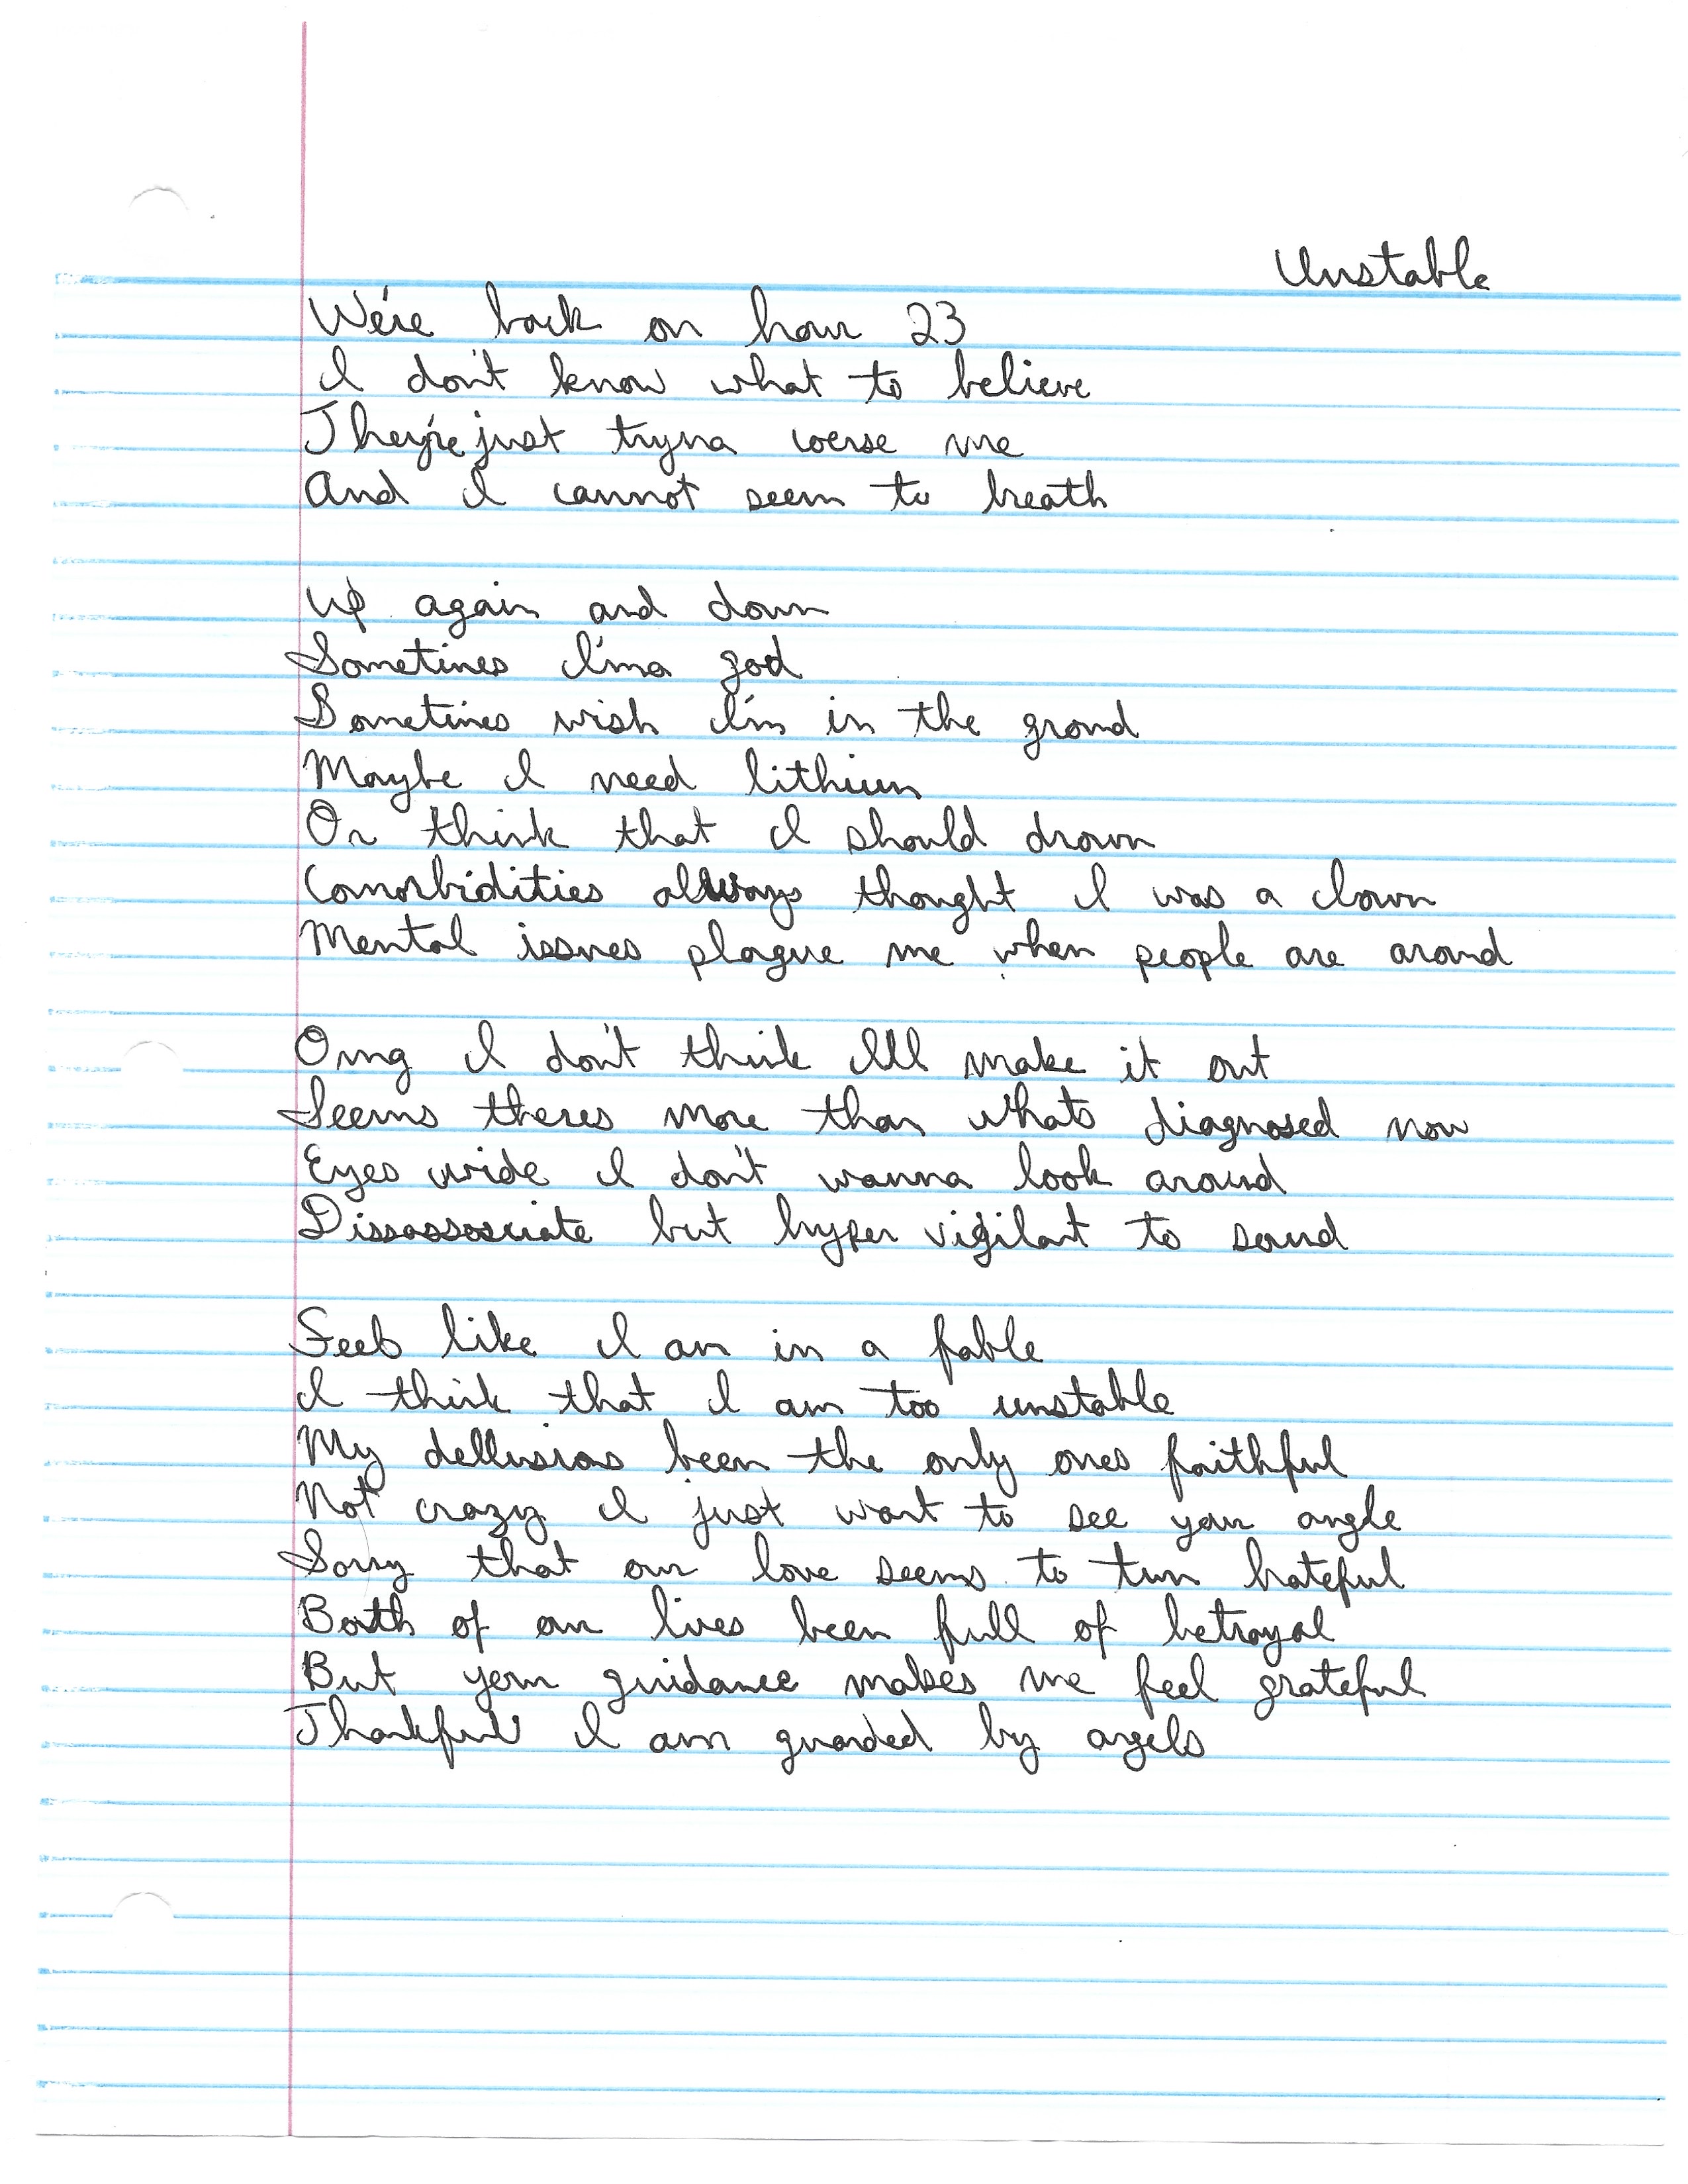 Unstable
We're back on hour 23
I don't know what to believe
They're just tryna coerse me
And I cannot seem to breath
Up again and down
Sometimes I'ma god
Sometimes wish I'm in the ground
Maybe I need lithium
Or think that I should drown
Comorbidities always thought I was a clown
Mental issues plague me when people are around
Omg I don't think I'll make it out
Seems theres more than whats diagnosed now
Eyes wide I don't wanna look around
Dissassosciate but hyper vigilant to sound
Feels like I am in a fable
I think that I am too unstable
My dellusions been the only ones faithful
Not crazy I just want to see your angle
Sorry that our love seems to turn hateful
Both of our lives been full of betrayal
But your guidance makes me feel grateful
Thankful I am guarded by angels